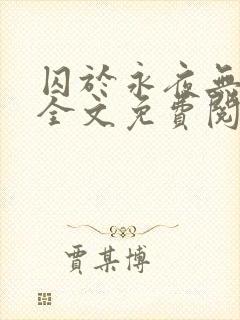 囚於永夜無
全文免費閱
賈某博